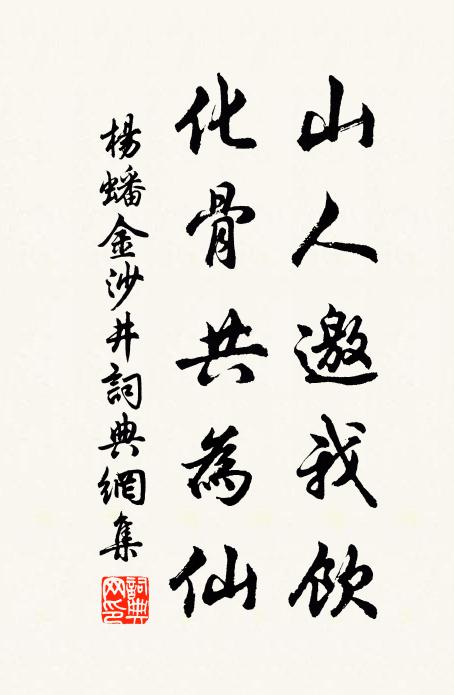 山人邀我飲
化骨共為仙
楊蟠金沙井詞典網集
詞典網印